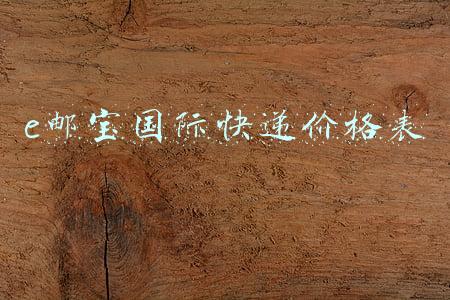 e邮宝国际快递价格表